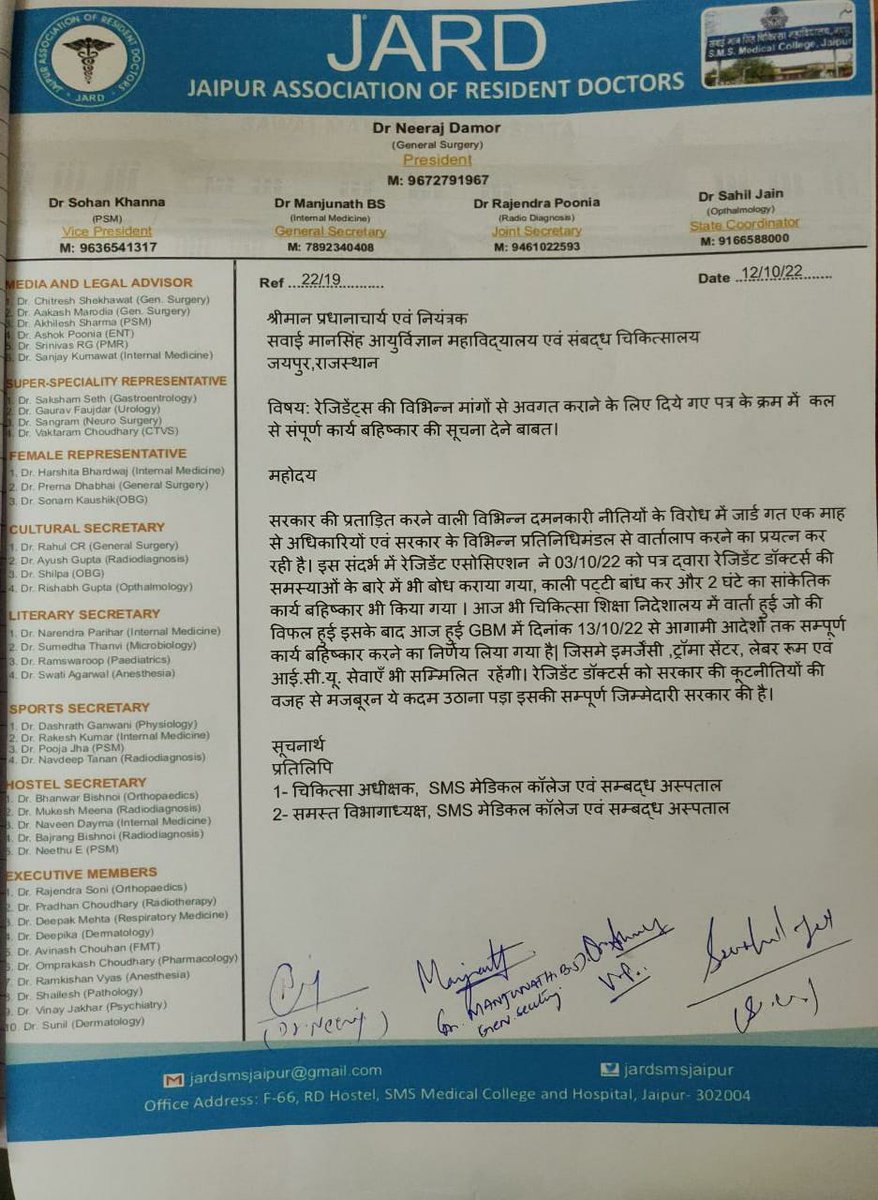 JAIPUR ASSOCIATION OF RESIDENT DOCTORS
JARD
JARD
JAIPUR ASSOCIATION OF RESIDENT DOCTORS
सवाई मान सिंह चिकित्सा महाविद्यालय, जयपुर
S.M.S. Medical College, Jaipur
Dr Neeraj Damor
(General Surgery)
President
M: 9672791967
Dr Sohan Khanna
(PSM)
Vice President
M: 9636541317
Dr Manjunath BS
(Internal Medicine)
General Secretary
M: 7892340408
Dr Rajendra Poonia
(Radio Diagnosis)
Joint Secretary
M: 9461022593
Dr Sahil Jain
(Opthalmology)
State Coordinator
M: 9166588000
MEDIA AND LEGAL ADVISOR
1. Dr. Chitresh Shekhawat (Gen. Surgery)
2. Dr. Aakash Marodia (Gen. Surgery)
3. Dr. Akhilesh Sharma (PSM)
4. Dr. Ashok Poonia (ENT)
5. Dr. Srinivas RG (PMR)
6. Dr. Sanjay Kumawat (Internal Medicine)
SUPER-SPECIALITY REPRESENTATIVE
1. Dr. Saksham Seth (Gastroentrology)
2. Dr. Gaurav Faujdar (Urology)
3. Dr. Sangram (Neuro Surgery)
4. Dr. Vaktaram Choudhary (CTVS)
FEMALE REPRESENTATIVE
1. Dr. Harshita Bhardwaj (Internal Medicine)
2. Dr. Prerna Dhabhai (General Surgery)
3. Dr. Sonam Kaushik(OBG)
CULTURAL SECRETARY
1. Dr. Rahul CR (General Surgery)
2. Dr. Ayush Gupta (Radiodiagnosis)
3. Dr. Shilpa (OBG)
4. Dr. Rishabh Gupta (Opthalmology)
LITERARY SECRETARY
1. Dr. Narendra Parihar (Internal Medicine)
2. Dr. Sumedha Thanvi (Microbiology)
3. Dr. Ramswaroop (Paediatrics)
4. Dr. Swati Agarwal (Anesthesia)
SPORTS SECRETARY
1. Dr. Dashrath Ganwani (Physiology)
2. Dr. Rakesh Kumar (Internal Medicine)
3. Dr. Pooja Jha (PSM)
4. Dr. Navdeep Tanan (Radiodiagnosis)
HOSTEL SECRETARY
1. Dr. Bhanwar Bishnoi (Orthopaedics)
2. Dr. Mukesh Meena (Radiodiagnosis)
3. Dr. Naveen Dayma (Internal Medicine)
4. Dr. Bajrang Bishnoi (Radiodiagnosis)
5. Dr. Neethu E (PSM)
EXECUTIVE MEMBERS
1. Dr. Rajendra Soni (Orthopaedics)
2. Dr. Pradhan Choudhary (Radiotherapy)
3. Dr. Deepak Mehta (Respiratory Medicine)
4. Dr. Deepika (Dermatology)
5. Dr. Avinash Chouhan (FMT)
6. Dr. Omprakash Choudhary (Pharmacology)
7. Dr. Ramkishan Vyas (Anesthesia)
8. Dr. Shailesh (Pathology)
9. Dr. Vinay Jakhar (Psychiatry)
10. Dr. Sunil (Dermatology)
Ref ...22/19............
Date ..12/10/22.......
श्रीमान प्रधानाचार्य एवं नियंत्रक
सवाई मानसिंह आयुर्विज्ञान महाविद्यालय एवं संबद्ध चिकित्सालय
जयपुर,राजस्थान
विषय: रेजिडेंट्स की विभिन्न मांगों से अवगत कराने के लिए दिये गए पत्र के क्रम में कल
से संपूर्ण कार्य बहिष्कार की सूचना देने बाबत।
महोदय
सरकार की प्रताड़ित करने वाली विभिन्न दमनकारी नीतियों के विरोध में जार्ड गत एक माह
से अधिकारियों एवं सरकार के विभिन्न प्रतिनिधिमंडल से वार्तालाप करने का प्रयत्न कर
रही है। इस संदर्भ में रेजिडेंट एसोसिएशन ने 03/10/22 को पत्र द्वारा रेजिडेंट डॉक्टर्स की
समस्याओं के बारे में भी बोध कराया गया, काली पट्टी बांध कर और 2 घंटे का सांकेतिक
कार्य बहिष्कार भी किया गया । आज भी चिकित्सा शिक्षा निदेशालय में वार्ता हुई जो की
विफल हुई इसके बाद आज हुई GBM में दिनांक 13/10/22 से आगामी आदेशों तक सम्पूर्ण
कार्य बहिष्कार करने का निर्णय लिया गया है| जिसमे इमर्जेंसी ,ट्रॉमा सेंटर, लेबर रूम एवं
आई.सी.यू. सेवाएँ भी सम्मिलित रहेंगी। रेजिडेंट डॉक्टर्स को सरकार की कूटनीतियों की
वजह से मजबूरन ये कदम उठाना पड़ा इसकी सम्पूर्ण जिम्मेदारी सरकार की है।
सूचनार्थ
प्रतिलिपि
1- चिकित्सा अधीक्षक, SMS मेडिकल कॉलेज एवं सम्बद्ध अस्पताल
2- समस्त विभागाध्यक्ष, SMS मेडिकल कॉलेज एवं सम्बद्ध अस्पताल
(Dr. Neeraj)
Dr. MANJUNATH B.S
V.P.
jardsmsjaipur@gmail.com
jardsmsjaipur
Office Address: F-66, RD Hostel, SMS Medical College and Hospital, Jaipur- 302004